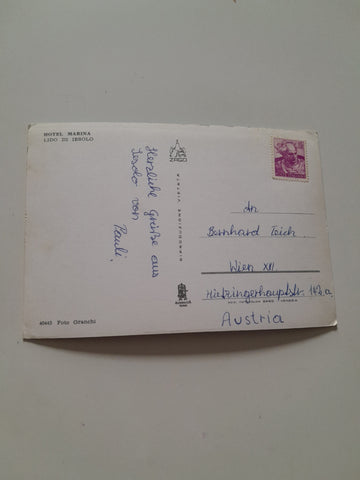 HOTEL MARINA
LIDO DI JESOLO
Herzliche Grüße aus
Jesolo von
Pauli.
ZAGO
An
Bernhard Teich
Wien XII.
Hietzingerhauptstr. 142a
Austria
40445 Foto Granchi